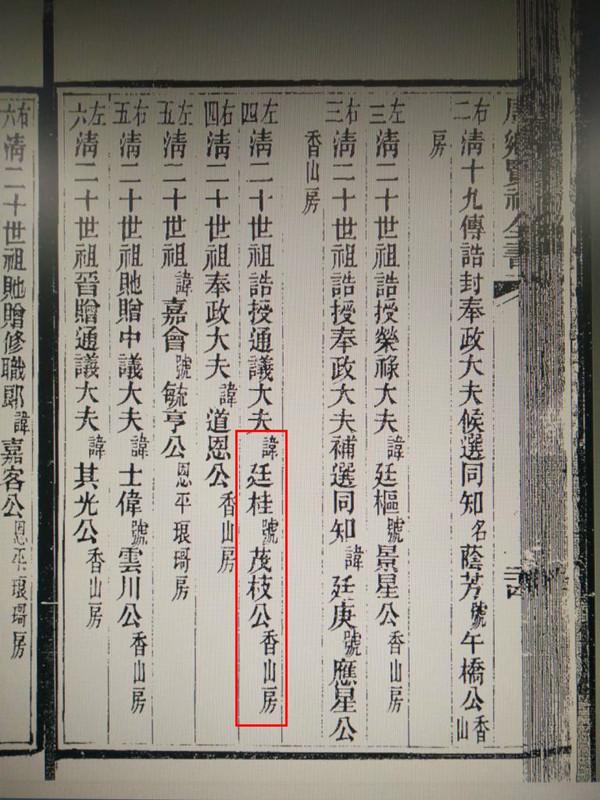 周鄉賢祠全書
右二 清十九傳誥封奉政大夫候選同知名蔭芳號午橋公香山
房
左三 清二十世祖誥授榮祿大夫諱廷樞號景星公香山房
右三 清二十世祖誥授奉政大夫補選同知諱廷庚號應星公
香山房
左四 清二十世祖誥授通議大夫諱廷桂號茂枝公香山房
右四 清二十世祖奉政大夫諱道恩公香山房
左五 清二十世祖諱嘉會號毓亨公恩平琅琦房
右五 清二十世祖貤贈中議大夫諱士偉號雲川公香山房
左六 清二十世祖晉贈通議大夫諱其光公香山房
右六 清二十世祖貤贈修職郎諱嘉客公恩平琅琦房